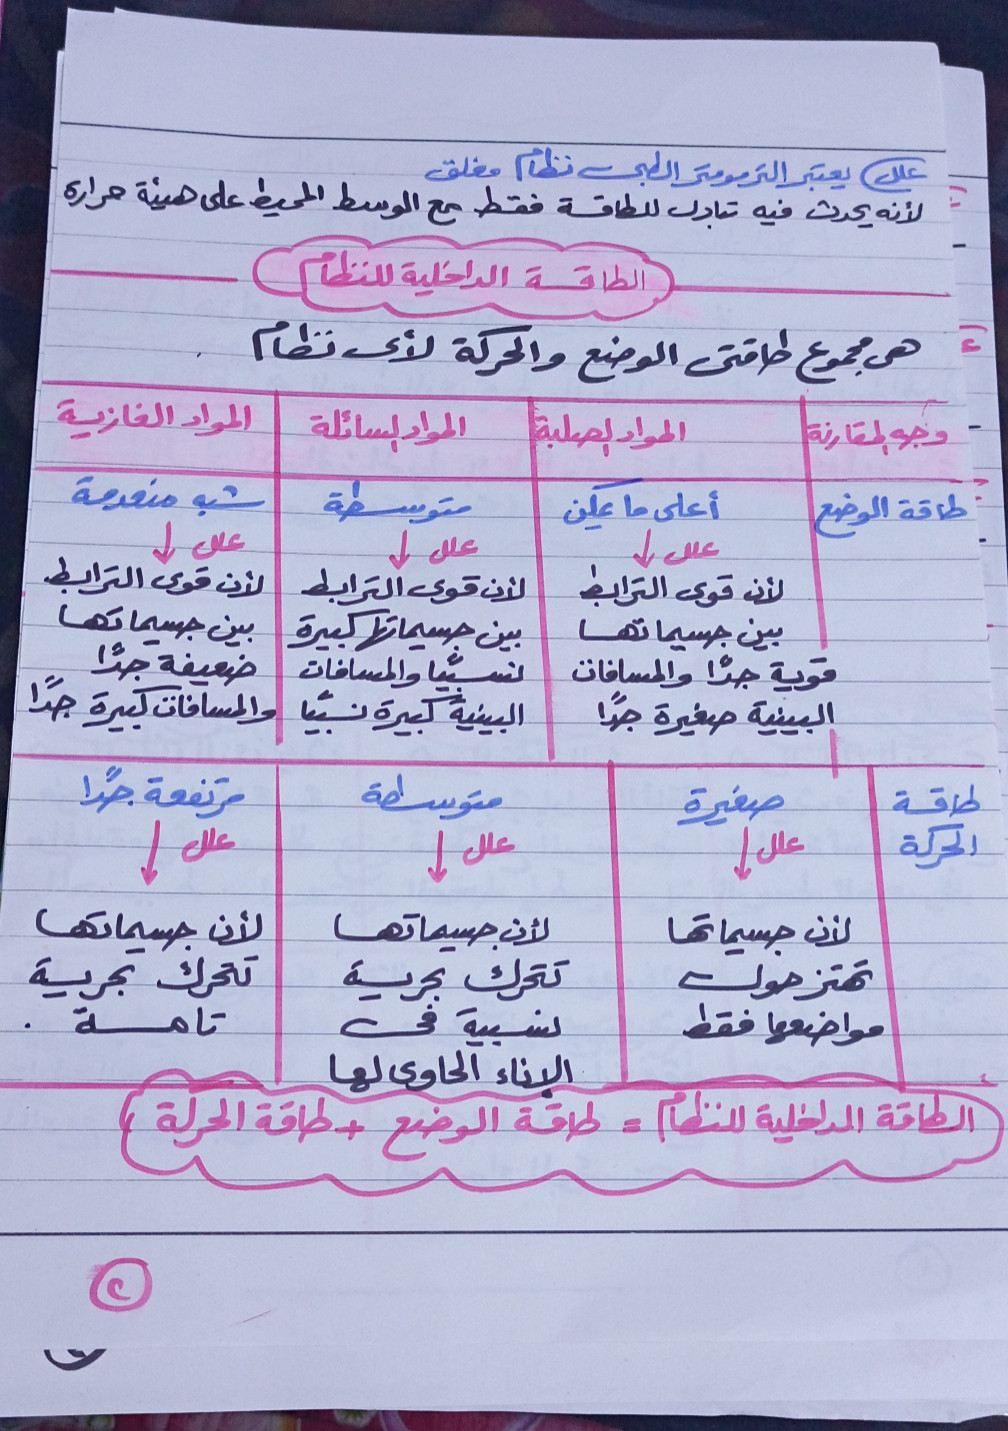 علل يعتبر الترمومتر الطبى نظام مغلق
لأنه يحدث فيه تبادل للطاقة فقط مع الوسط المحيط على هيئة حرارة
الطاقة الداخلية للنظام
هى مجموع طاقتى الوضع والحركة لأى نظام
وجه المقارنة
المواد الصلبة
المواد السائلة
المواد الغازية
طاقة الوضع
أعلى ما يمكن
علل
لأن قوى الترابط
بين جسيماتها
قوية جدًا والمسافات
البينية صغيرة جدًا
متوسطة
علل
لأن قوى الترابط
بين جسيماتها كبيرة
نسبيًا والمسافات
البينية كبيرة نسبيًا
شبه منعدمة
علل
لأن قوى الترابط
بين جسيماتها
ضعيفة جدًا
والمسافات كبيرة جدًا
طاقة
الحركة
صغيرة
علل
لأن جسيماتها
تهتز حول
مواضعها فقط
متوسطة
علل
لأن جسيماتها
تتحرك بحرية
نسبية فى
الإناء الحاوى لها
مرتفعة جدًا
علل
لأن جسيماتها
تتحرك بحرية
تامة .
الطاقة الداخلية للنظام = طاقة الوضع + طاقة الحركة
٢